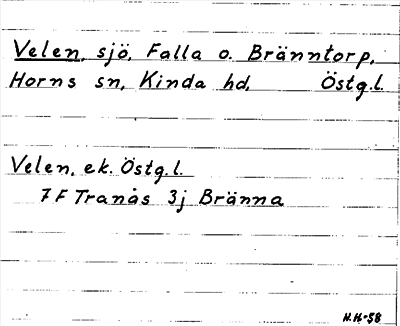 Velen, sjö, Falla o. Bränntorp,
Horns sn, Kinda hd, Östg.l.
Velen, ek. Östg.l.
7 F Tranås 3j Bränna
H.H.-58